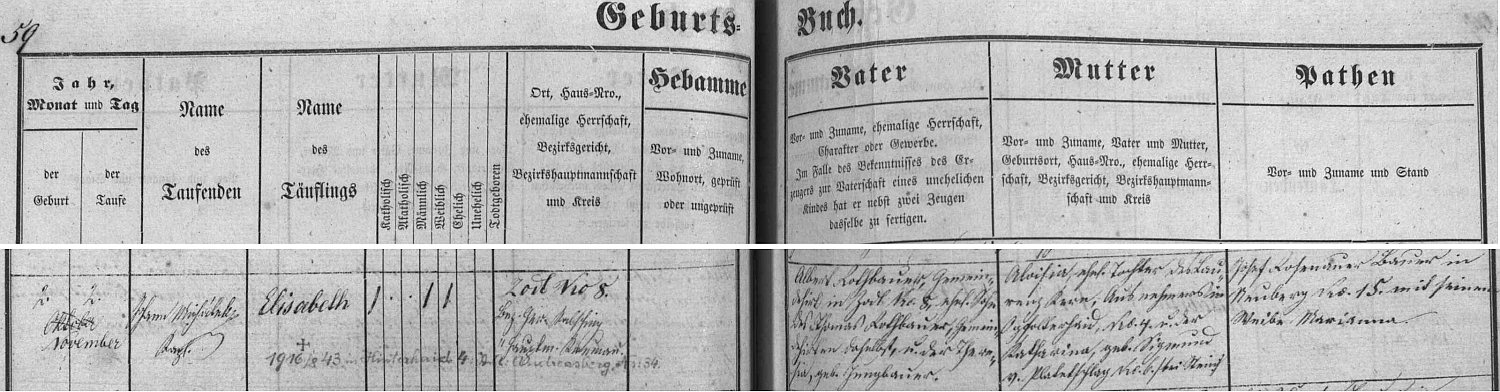 59
Geburts-
Buch.
Jahr,
Monat und Tag
der
Geburt
der
Taufe
Name
des
Taufenden
Name
des
Täuflings
Katholisch
Akatholisch
Männlich
Weiblich
Ehelich
Unehelich
Todtgeboren
Ort, Haus-Nro.,
ehemalige Herrschaft,
Bezirksgericht,
Bezirkshauptmannschaft
und Kreis
Hebamme
Vor- und Zuname,
Wohnort, geprüft
oder ungeprüft
Vater
Vor- und Zuname, ehemalige Herrschaft,
Charakter oder Gewerbe.
Im Falle des Bekenntnisses des Er-
zeugers zur Vaterschaft eines unehelichen
Kindes hat er nebst zwei Zeugen
dasselbe zu fertigen.
Mutter
Vor- und Zuname, Vater und Mutter,
Geburtsort, Haus-Nro., ehemalige Herr-
schaft, Bezirksgericht, Bezirkshauptmann-
schaft und Kreis
Pathen
Vor- und Zuname und Stand
2. 2.
Oktober
November
Elisabeth
1 . . 1 1
† 1916/8 43 Hinterhaid 4. Andreasberg 34.
Nro 8.
Albert Rothbauer, Gemein-
dehirt in Nro. 8, ehel. Sohn
des Thomas Rothbauer, Gemein-
dehirten daselbst, u. der There-
sia, geb. Jungbauer.
Aloisia, ehel. Tochter des Lau-
renz Kern, Ausnehmers in
Nro. 7 u. der
Katharina, geb. Sigmund
v. Plateschlag Nro. 6.
Josef Rosenauer Bauer in
Neuberg Nro. 15. mit seinem
Weibe Marianna.